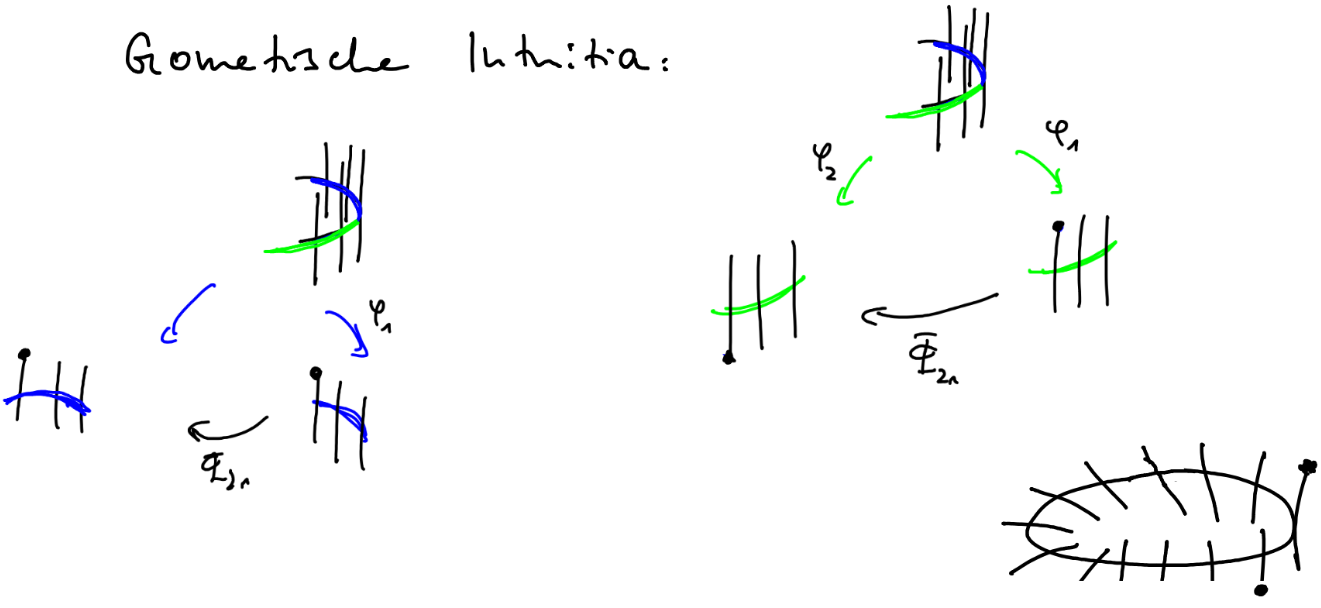 Geometische Intuition:
φ₂
φ₁
φ₁
Φ₂₁
Φ₂₁